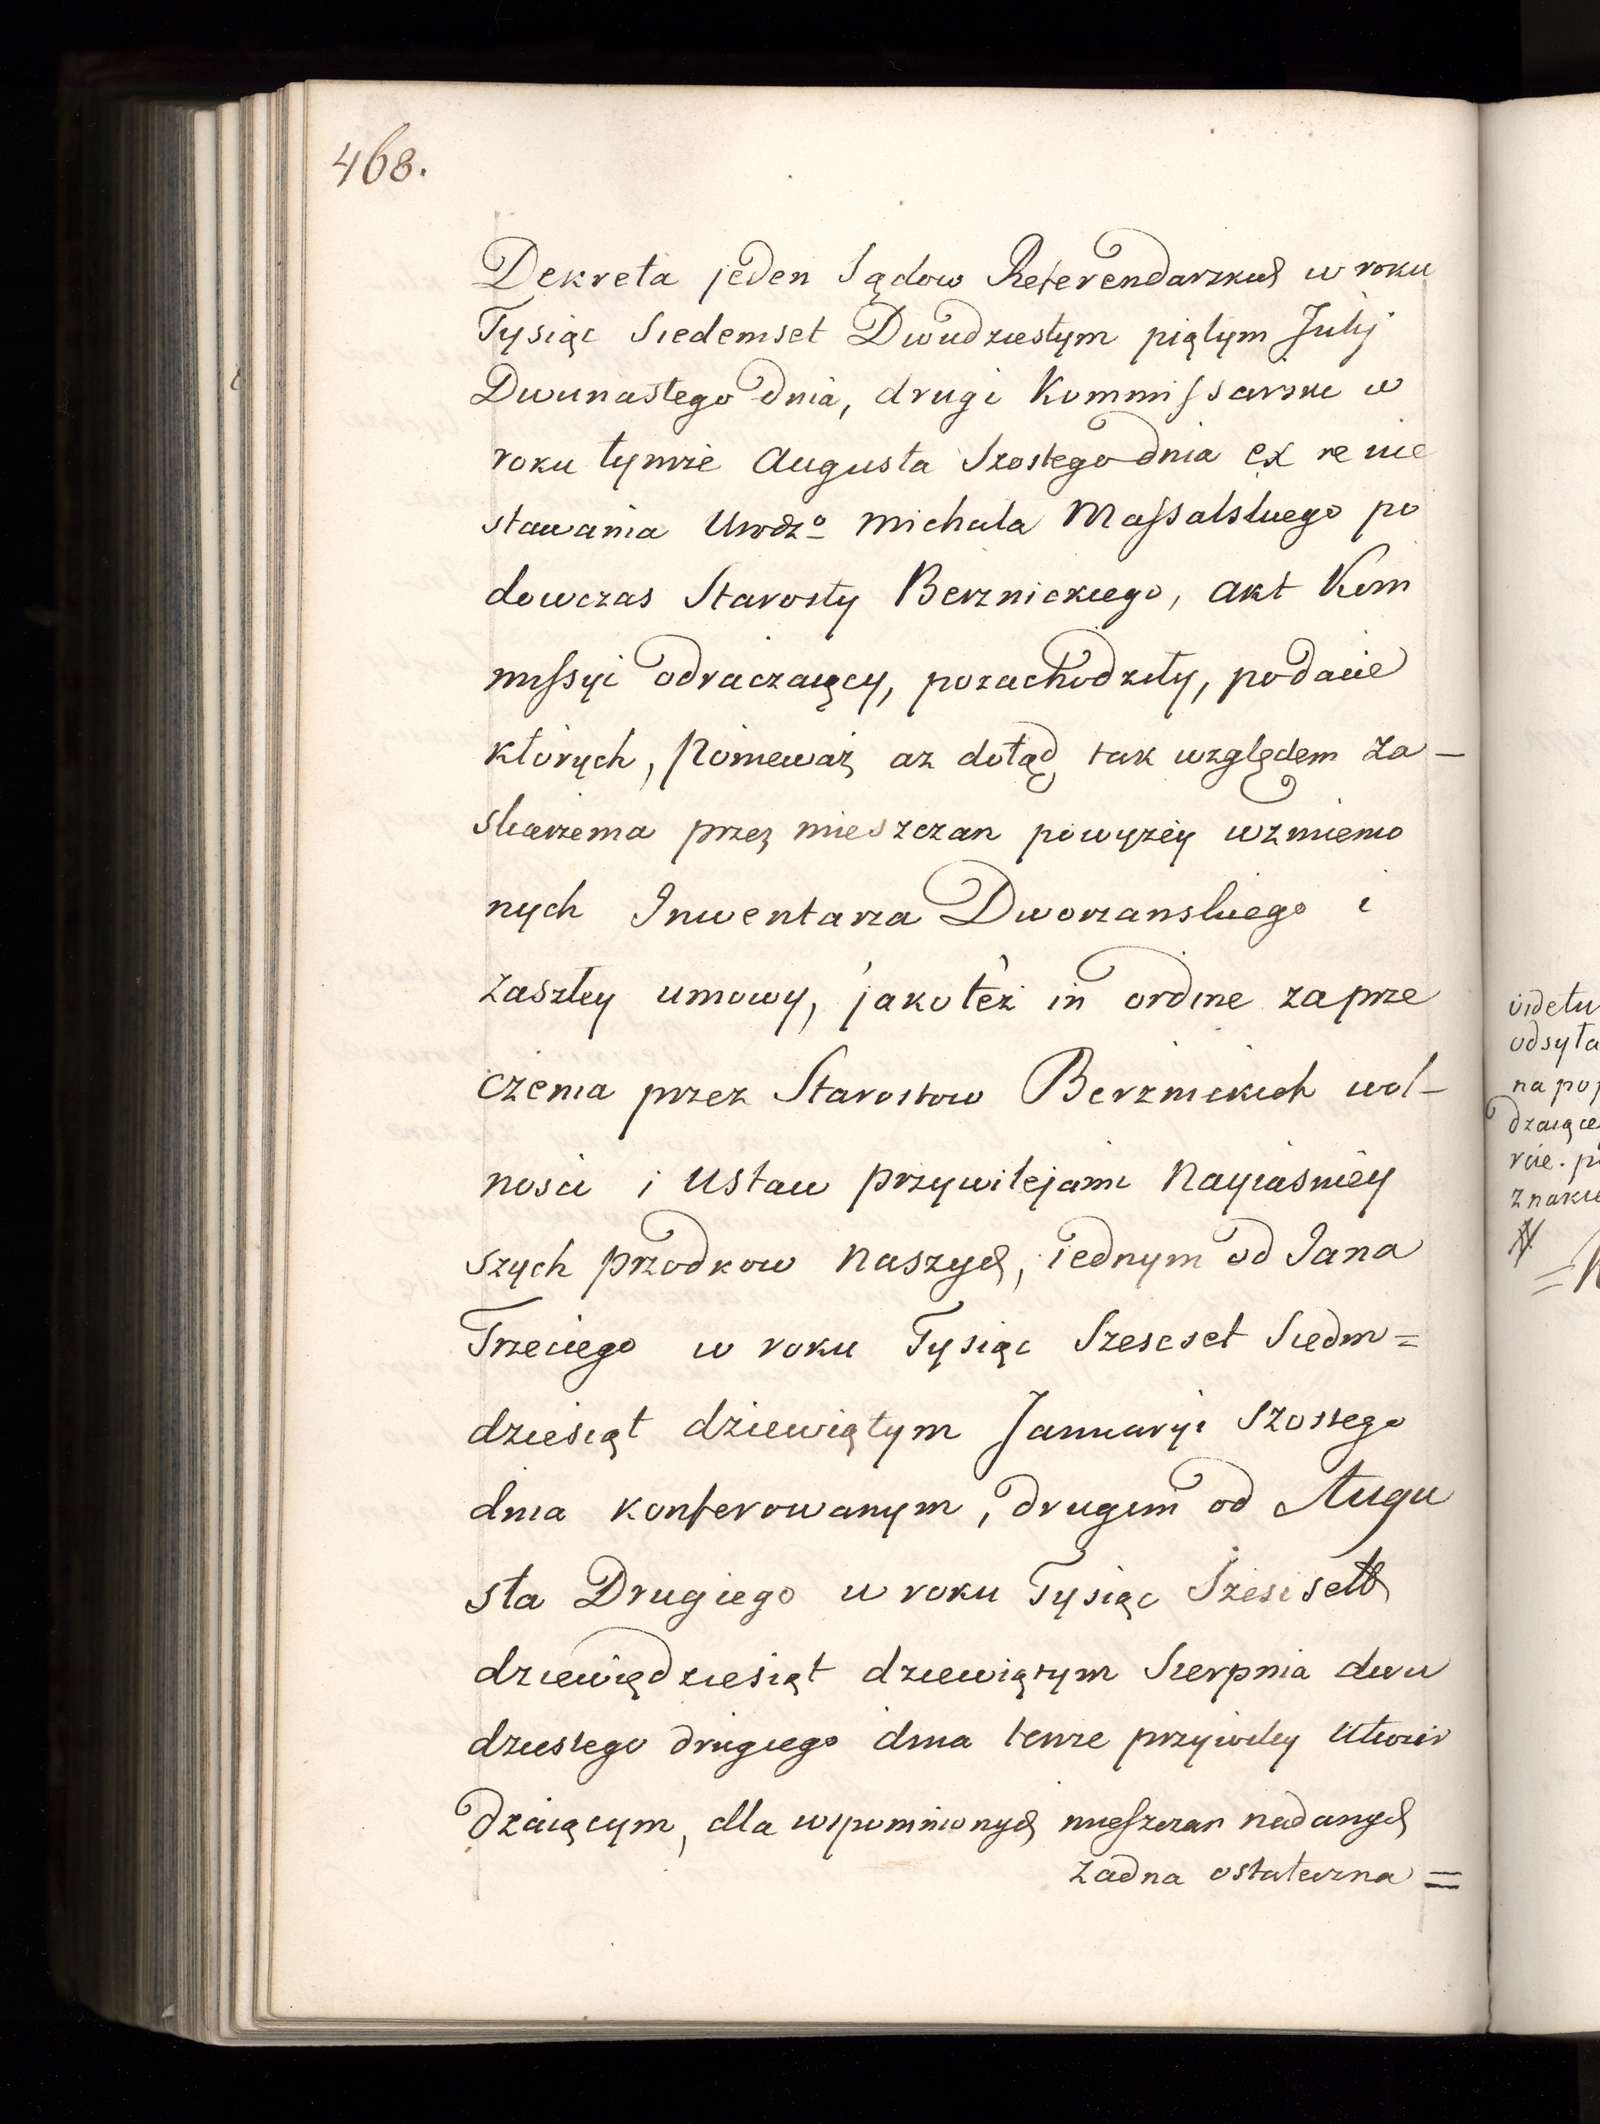 468.
Dekreta jeden Sądow Referendarskich w roku
Tysiąc Siedemset Dwudziestym piątym Julij
Dwunastego dnia, drugi Kommissarski w
roku tymże Augusta Szostego dnia ex re nie
stawania Urodzo Michala Massalskiego po
dowczas Starosty Berznickiego, akt Kom
missyi odraczaiący, pozachodziły, po dacie
których, Ponieważ az dotąd tak względem za-
skarżenia przez mieszczan powyżey wzmienio
nych Inwentarza Dworzanskiego i
zaszłey umowy, jako też in ordine zaprze
czenia przez Starostow Berżnickich wol-
nosci i ustaw przywilejami Nayiaśniey
szych przodkow Naszych, iednym od Jana
Trzeciego w roku Tysiąc Szescset Siedm=
dziesiąt dziewiątym Januaryi Szostego
dnia konferowanym, drugim od Augu
sta Drugiego w roku Tysiąc Sześćset
dziewiędziesiąt dziewiątym Sierpnia dwu
dziestego drugiego dnia tenże przywiley utwier
dzaiącym, dla wspomnionych mieszczan nadanych
żadna ostateczna =
videtu
odsyła
na pop
dzaiące
rcie. p
znaku